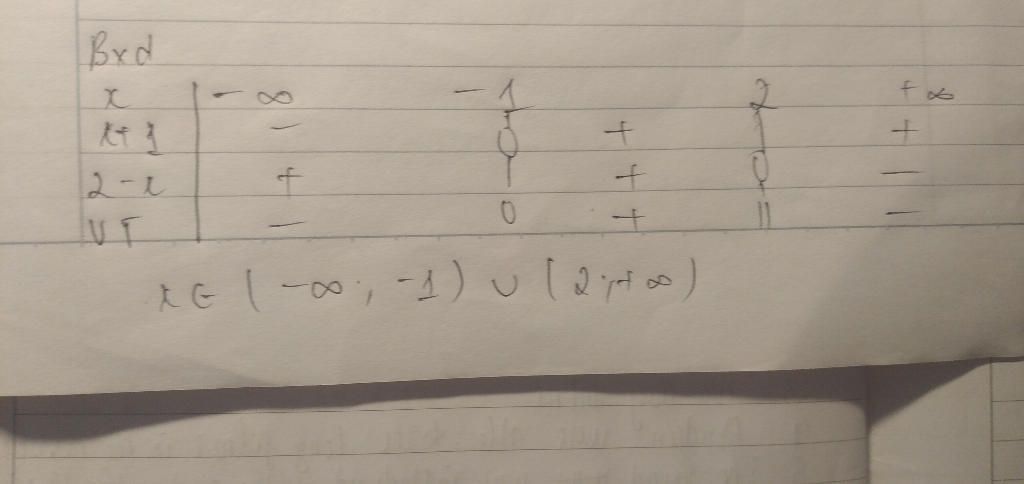 Bxd
x | -∞ -1 2 +∞
x+1 | - 0 + | +
2-x | + | + 0 -
VT | - 0 + || -
x ∈ (-∞; -1) ∪ (2; +∞)